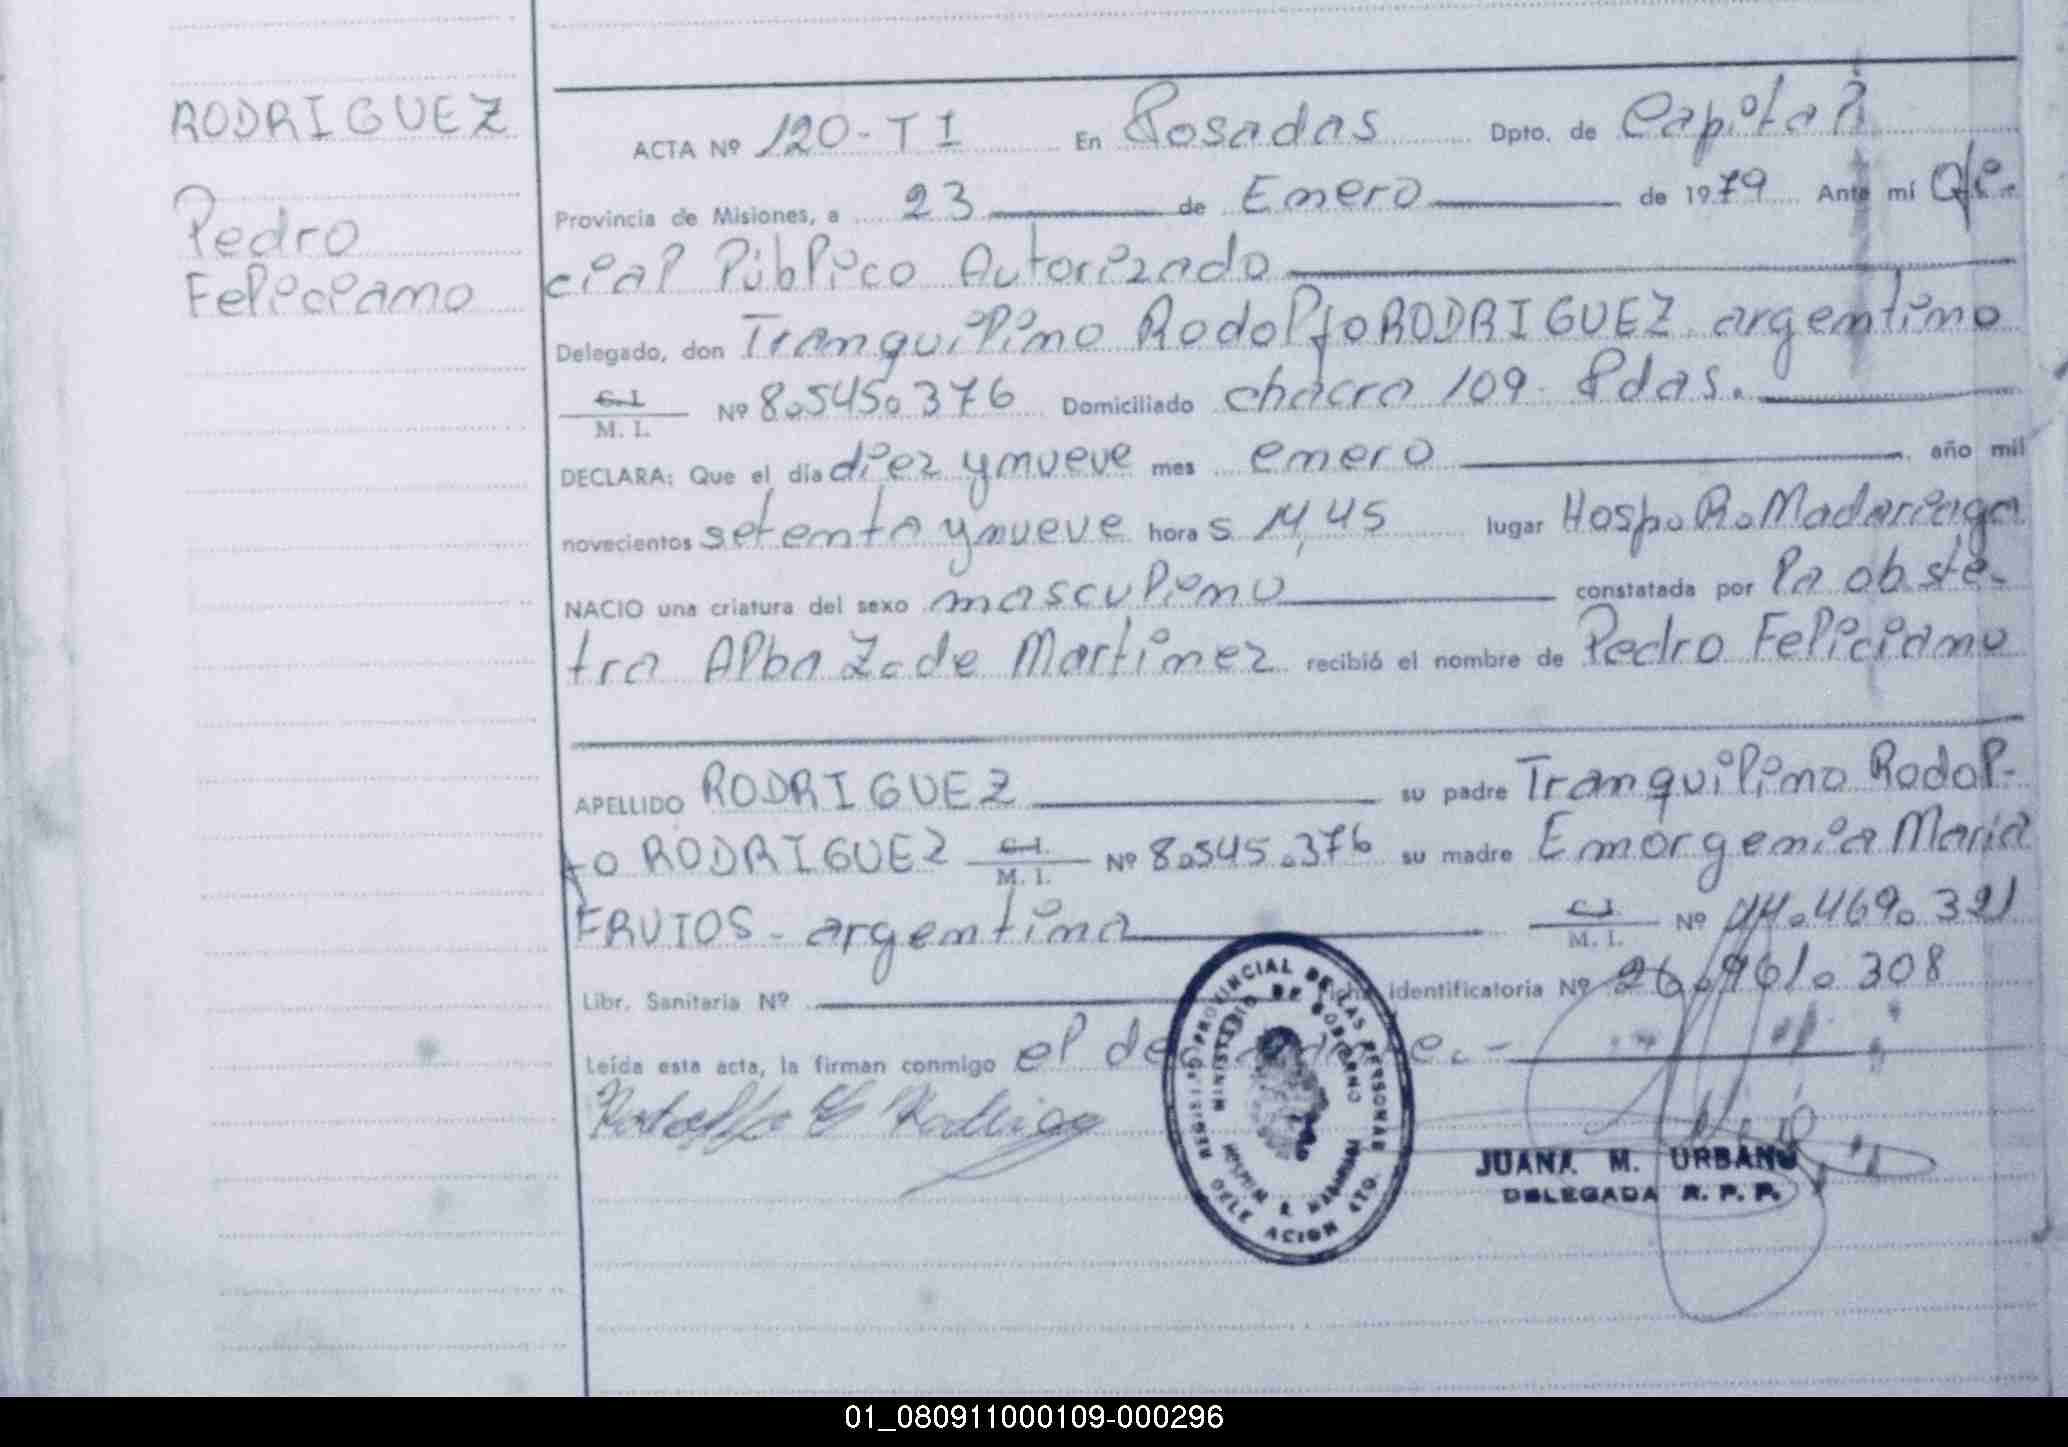 RODRIGUEZ
Pedro
Feliciano
ACTA Nº 120-TI En Posadas Dpto. de Capital
Provincia de Misiones, a 23 de Enero de 1979 Ante mí Ofi-
cial Público Autorizado
Delegado, don Tranquilino Rodolfo RODRIGUEZ argentino
C.I. M. I. Nº 8.545.376 Domiciliado chacra 109- Pdas.
DECLARA: Que el día diez y nueve mes enero año mil
novecientos setenta y nueve hora s 14,45 lugar Hosp. R. Madariaga
NACIO una criatura del sexo masculino constatada por la obste-
tra Alba Z. de Martinez recibió el nombre de Pedro Feliciano
APELLIDO RODRIGUEZ su padre Tranquilino Rodol-
fo RODRIGUEZ C.I. M. I. Nº 8.545.376 su madre Emorgenia Maria
FRUTOS - argentina C.I. M. I. Nº 14.469.321
Libr. Sanitaria Nº Ficha identificatoria Nº 26.961.308
Leída esta acta, la firman conmigo el declarante.-
REGISTRO PROVINCIAL DE LAS PERSONAS
MINISTERIO DE GOBIERNO
DELEGACION 4TO.
JUANA M. URBANO
DELEGADA R. P. P.
01_080911000109-000296